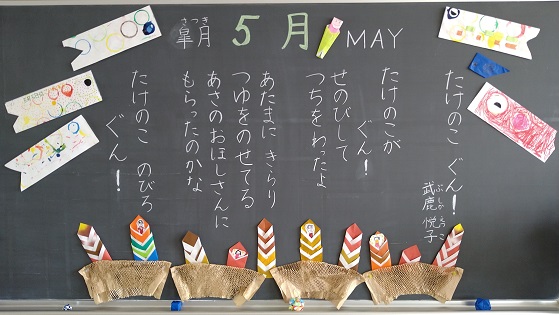 皐月 5月 MAY
さつき
たけのこ ぐん!
武鹿 悦子
ぶしか えつこ
たけのこが
ぐん!
せのびして
つちをわったよ
あたまに きらり
つゆをのせてる
あさのおほしさんに
もらったのかな
たけのこ のびろ
ぐん!